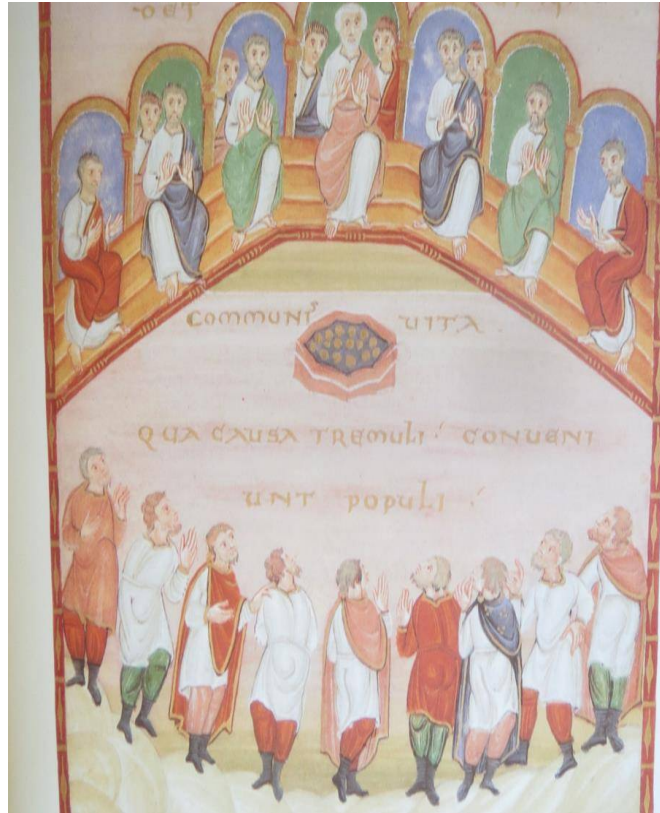 COMMUNI VITA
QUA CAUSA TREMULI CONVENI
UNT POPULI